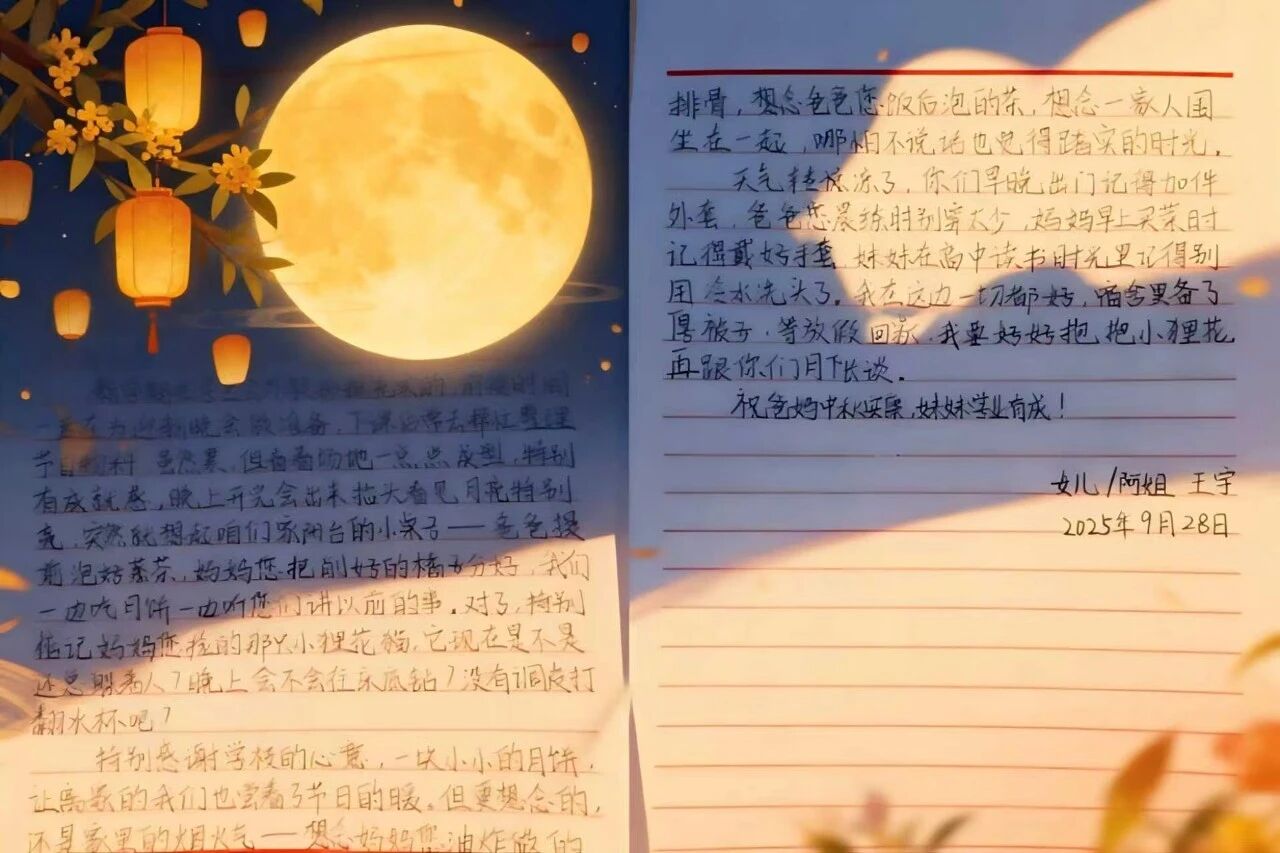 一直在为迎新晚会做准备，下课也常去操场整理
节目物料 虽然累，但看着场地一点点成型，特别
有成就感，晚上开完会出来抬头看见月亮特别
亮，突然就想起咱们家阳台的小桌子——爸爸提
前泡好茶，妈妈您把削好的橘子分好，我们
一边吃月饼一边听您们讲以前的事。对了，特别
惦记妈妈您捡的那只小狸花猫，它现在是不是
还总跟着人？晚上会不会往床底钻？没有调皮打
翻水杯吧？
特别感谢学校的心意，一块小小的月饼，
让离家的我们也尝着了节日的暖。但更想念的，
还是家里的烟火气——想念妈妈您油炸做的
排骨，想念爸爸您饭后泡的茶，想念一家人围
坐在一起，哪怕不说话也觉得踏实的时光。
天气转凉了，你们早晚出门记得加件
外套，爸爸您晨练时别穿太少，妈妈早上买菜时
记得戴好手套 妹妹在高中读书时光里记得别
用冷水洗头了。我在这边一切都好，宿舍里备了
厚被子，等放假回家，我要好好抱抱小狸花
再跟你们月下长谈。
祝爸妈中秋安康，妹妹学业有成！
女儿/阿姐 王宇
2025年9月28日